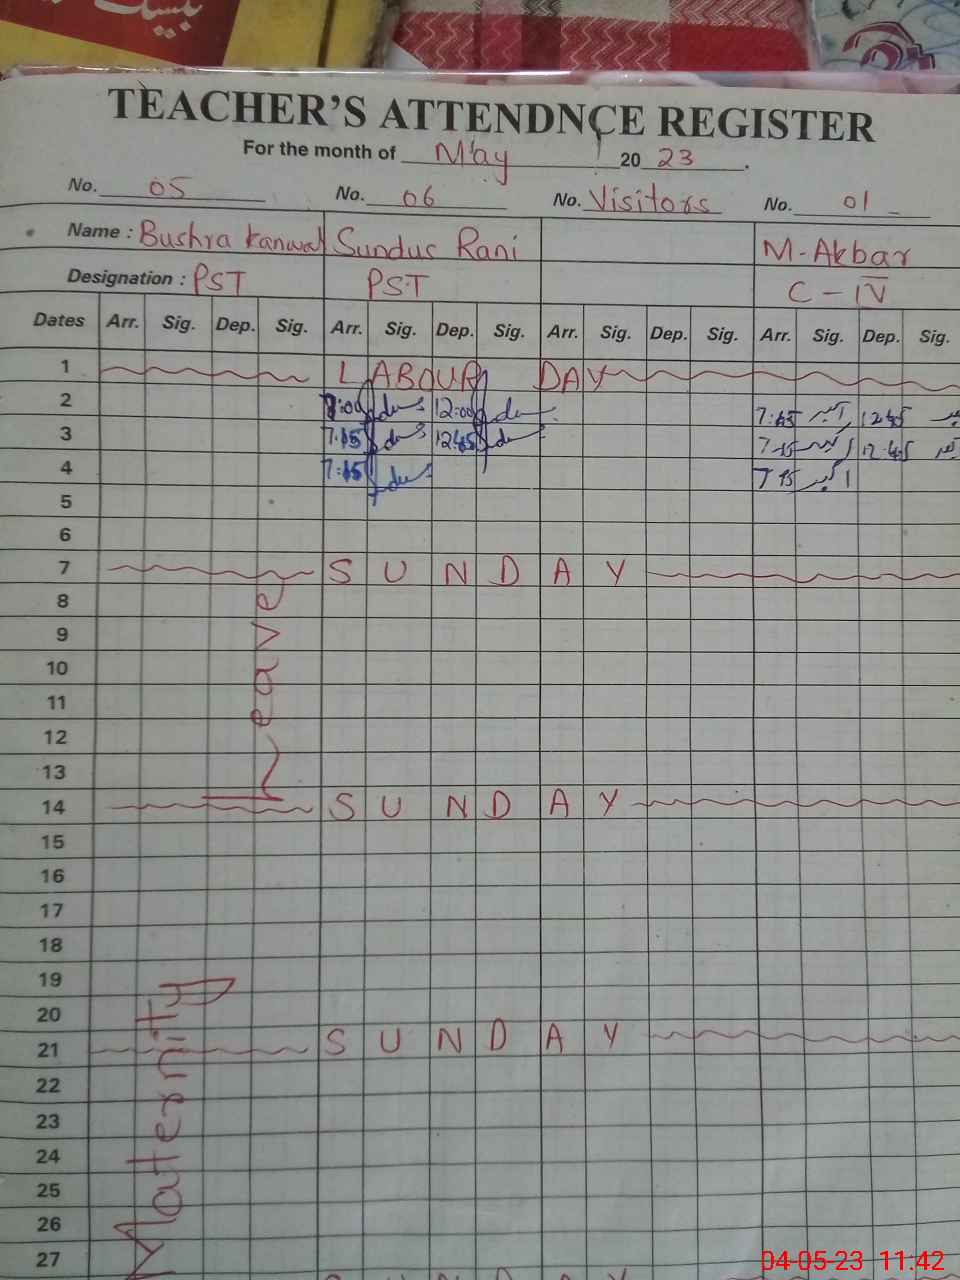 پبلیشر
TEACHER'S ATTENDNCE REGISTER
For the month of May 2023.
No. 05 No. 06 No. Visitors No. 01
Name : Bushra Kanwal Sundus Rani M-Akbar
Designation : PST PST C-IV
Dates Arr. Sig. Dep. Sig. Arr. Sig. Dep. Sig. Arr. Sig. Dep. Sig. Arr. Sig. Dep. Sig.
1 LABOUR DAY
2 12:00 7:45 اکبر 12:45
3 12:45 7:45 اکبر 12:45
4 7:45 7:45 اکبر
5
6
7 SUNDAY
8
9
10
11
12
13
14 SUNDAY
15
16
17
18
19
20
21 SUNDAY
22
23
24
25
26
27
Maternity Leave
SUNDAY
04-05-23 11:42